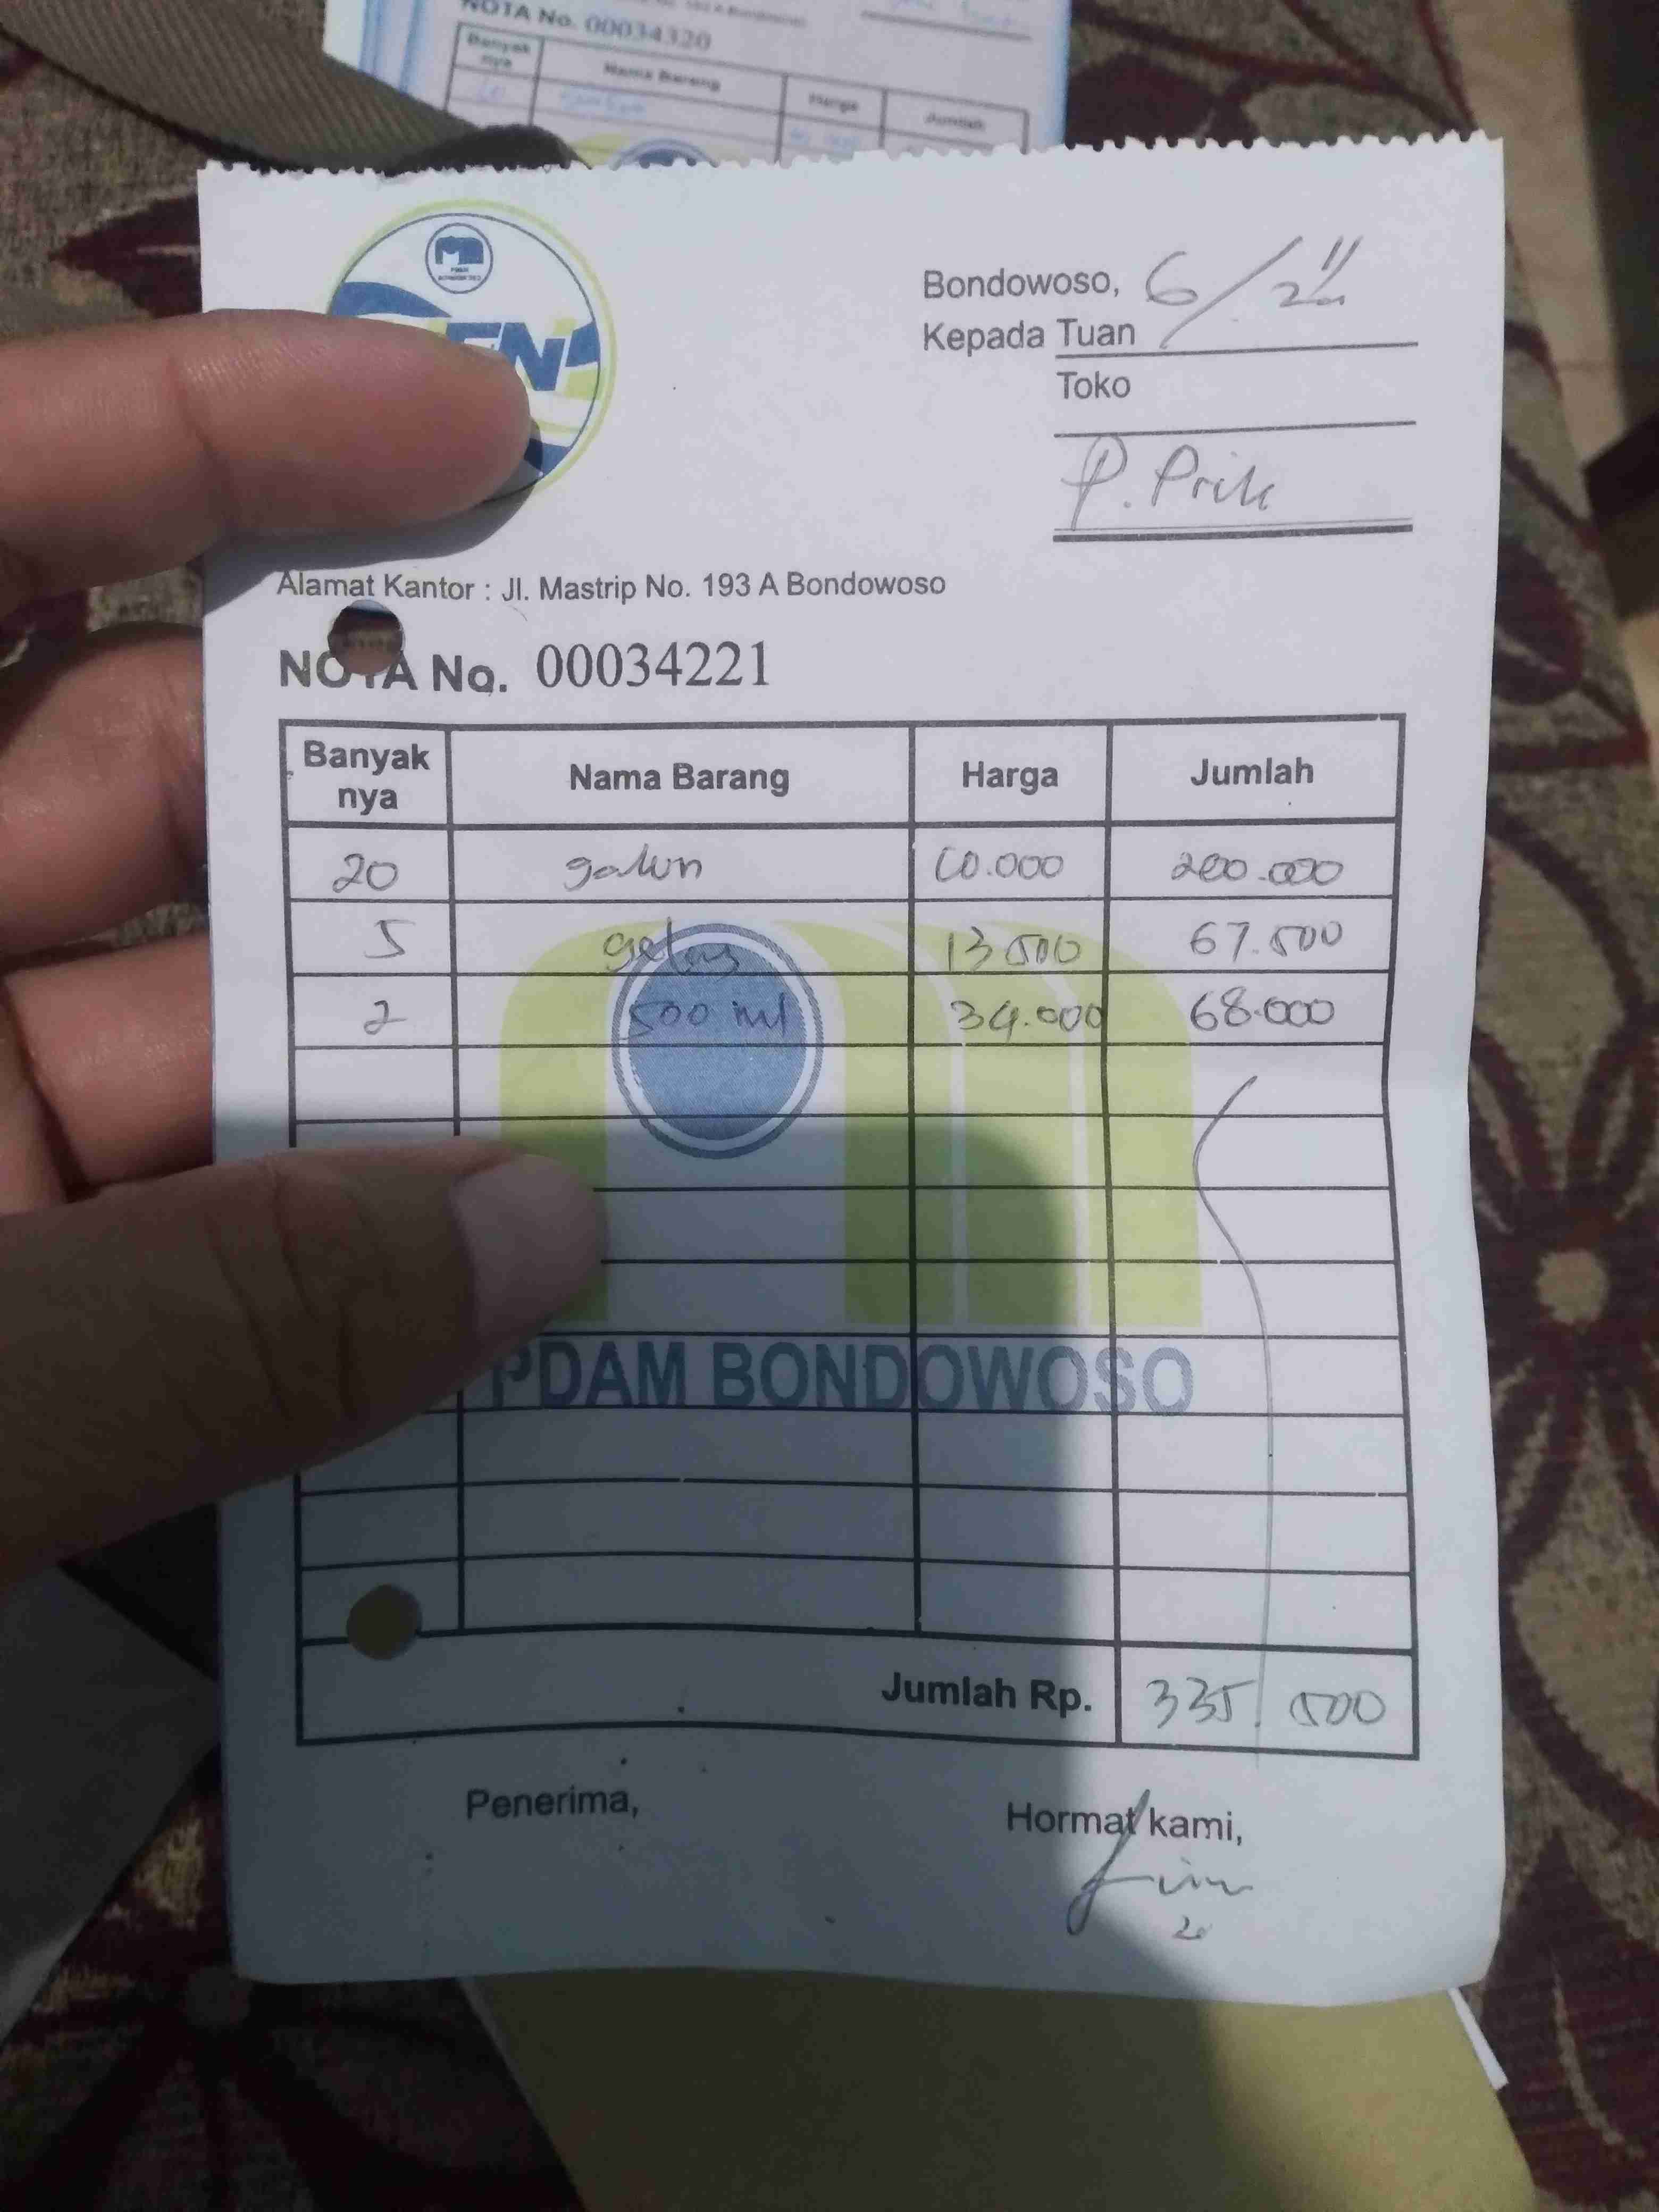 NOTA No. 00034320
Banyak nya Nama Barang Harga Jumlah
Bondowoso, 6/
Kepada Tuan
Toko
P. Prik
Alamat Kantor : Jl. Mastrip No. 193 A Bondowoso
NOTA No. 00034221
Banyak nya Nama Barang Harga Jumlah
20 galon 10.000 200.000
5 gelas 13.500 67.500
2 500 ml 34.000 68.000
PDAM BONDOWOSO
Jumlah Rp. 335.500
Penerima, Hormat kami,